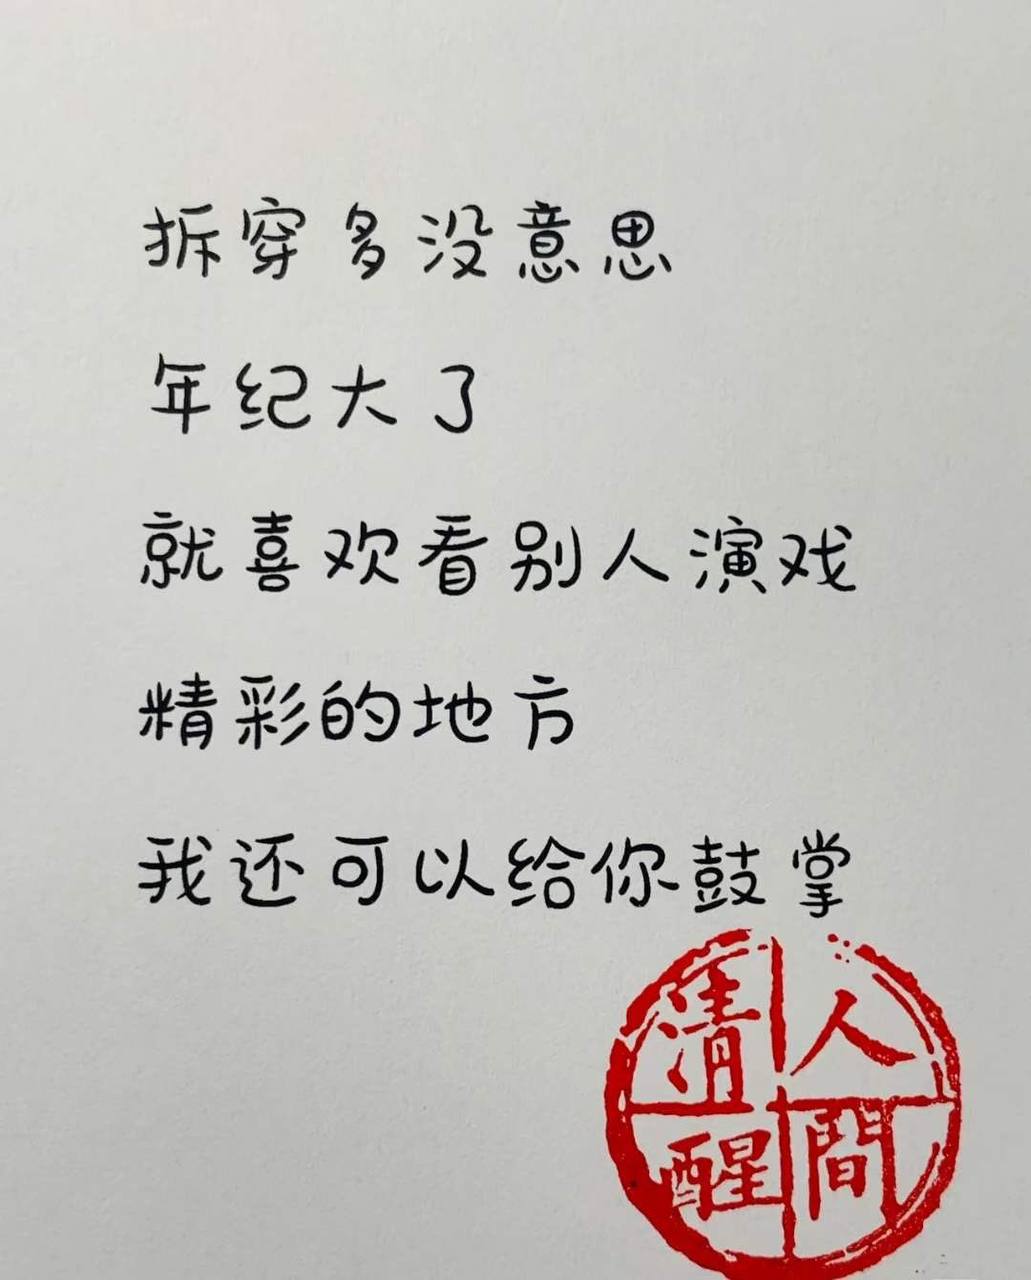 拆穿多没意思
年纪大了
就喜欢看别人演戏
精彩的地方
我还可以给你鼓掌
人間
清醒